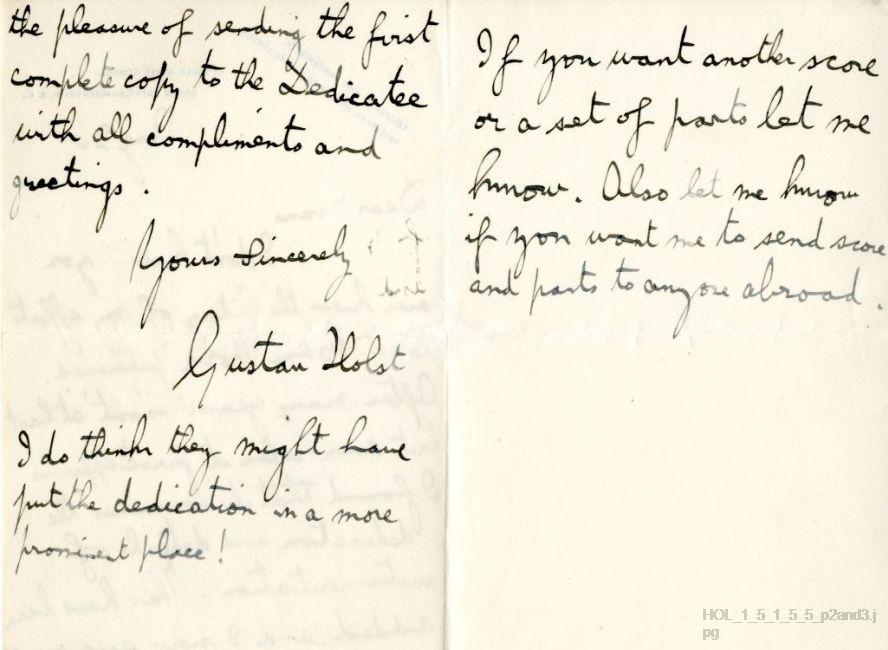 the pleasure of sending the first
complete copy to the Dedicatee
with all compliments and
greetings.
Yours Sincerely
Gustav Holst
I do think they might have
put the dedication in a more
prominent place!
If you want another score
or a set of parts let me
know. Also let me know
if you want me to send score
and parts to anyone abroad.
HOL_1_5_1_5_5_p2and3.j
pg